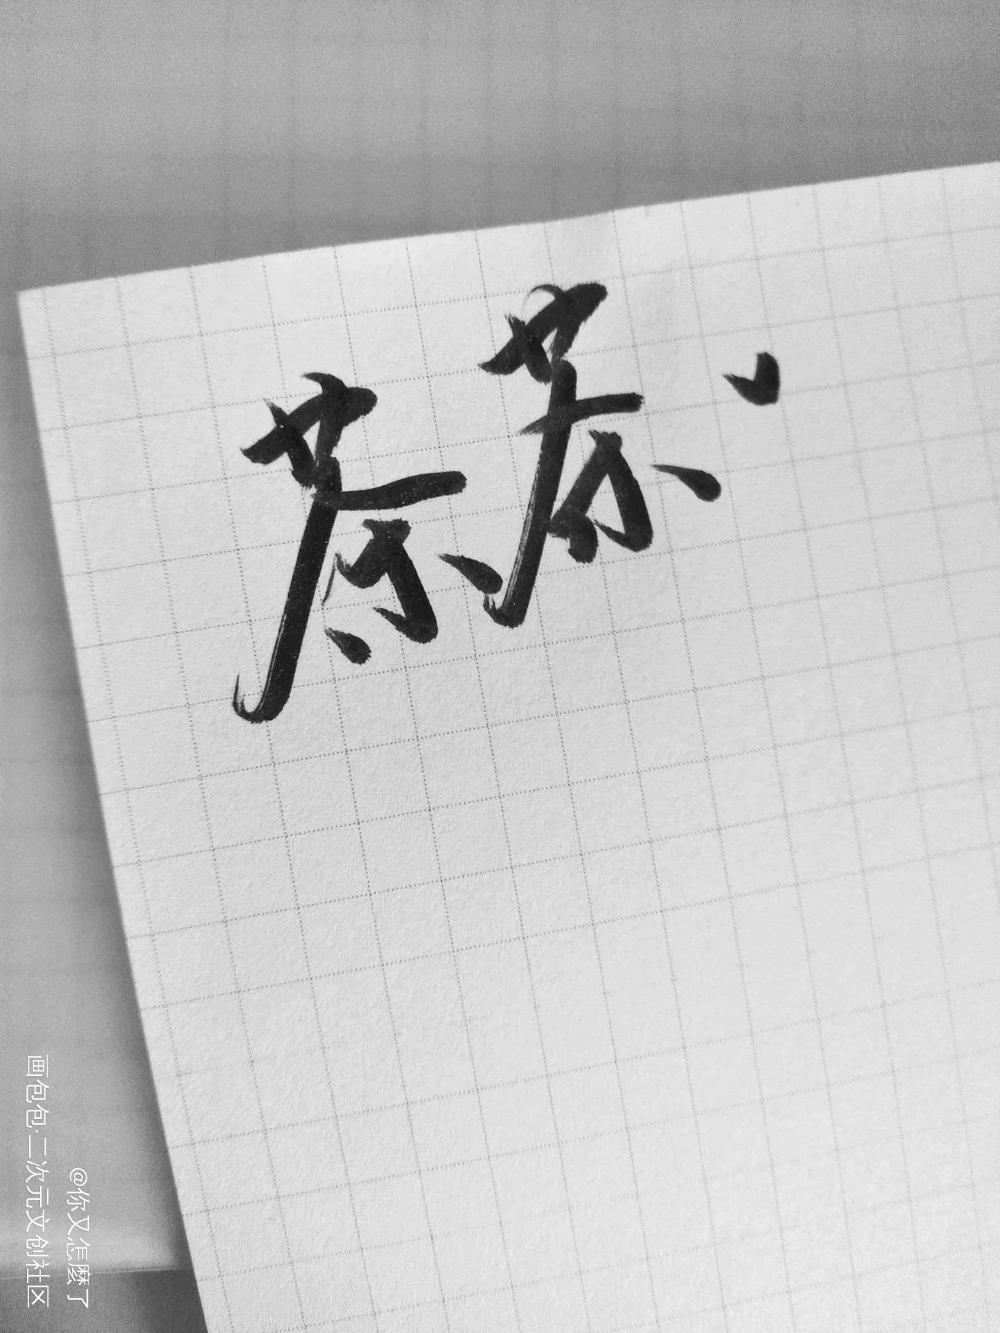 茶茶、
@你又怎麼了
画包包·二次元文创社区